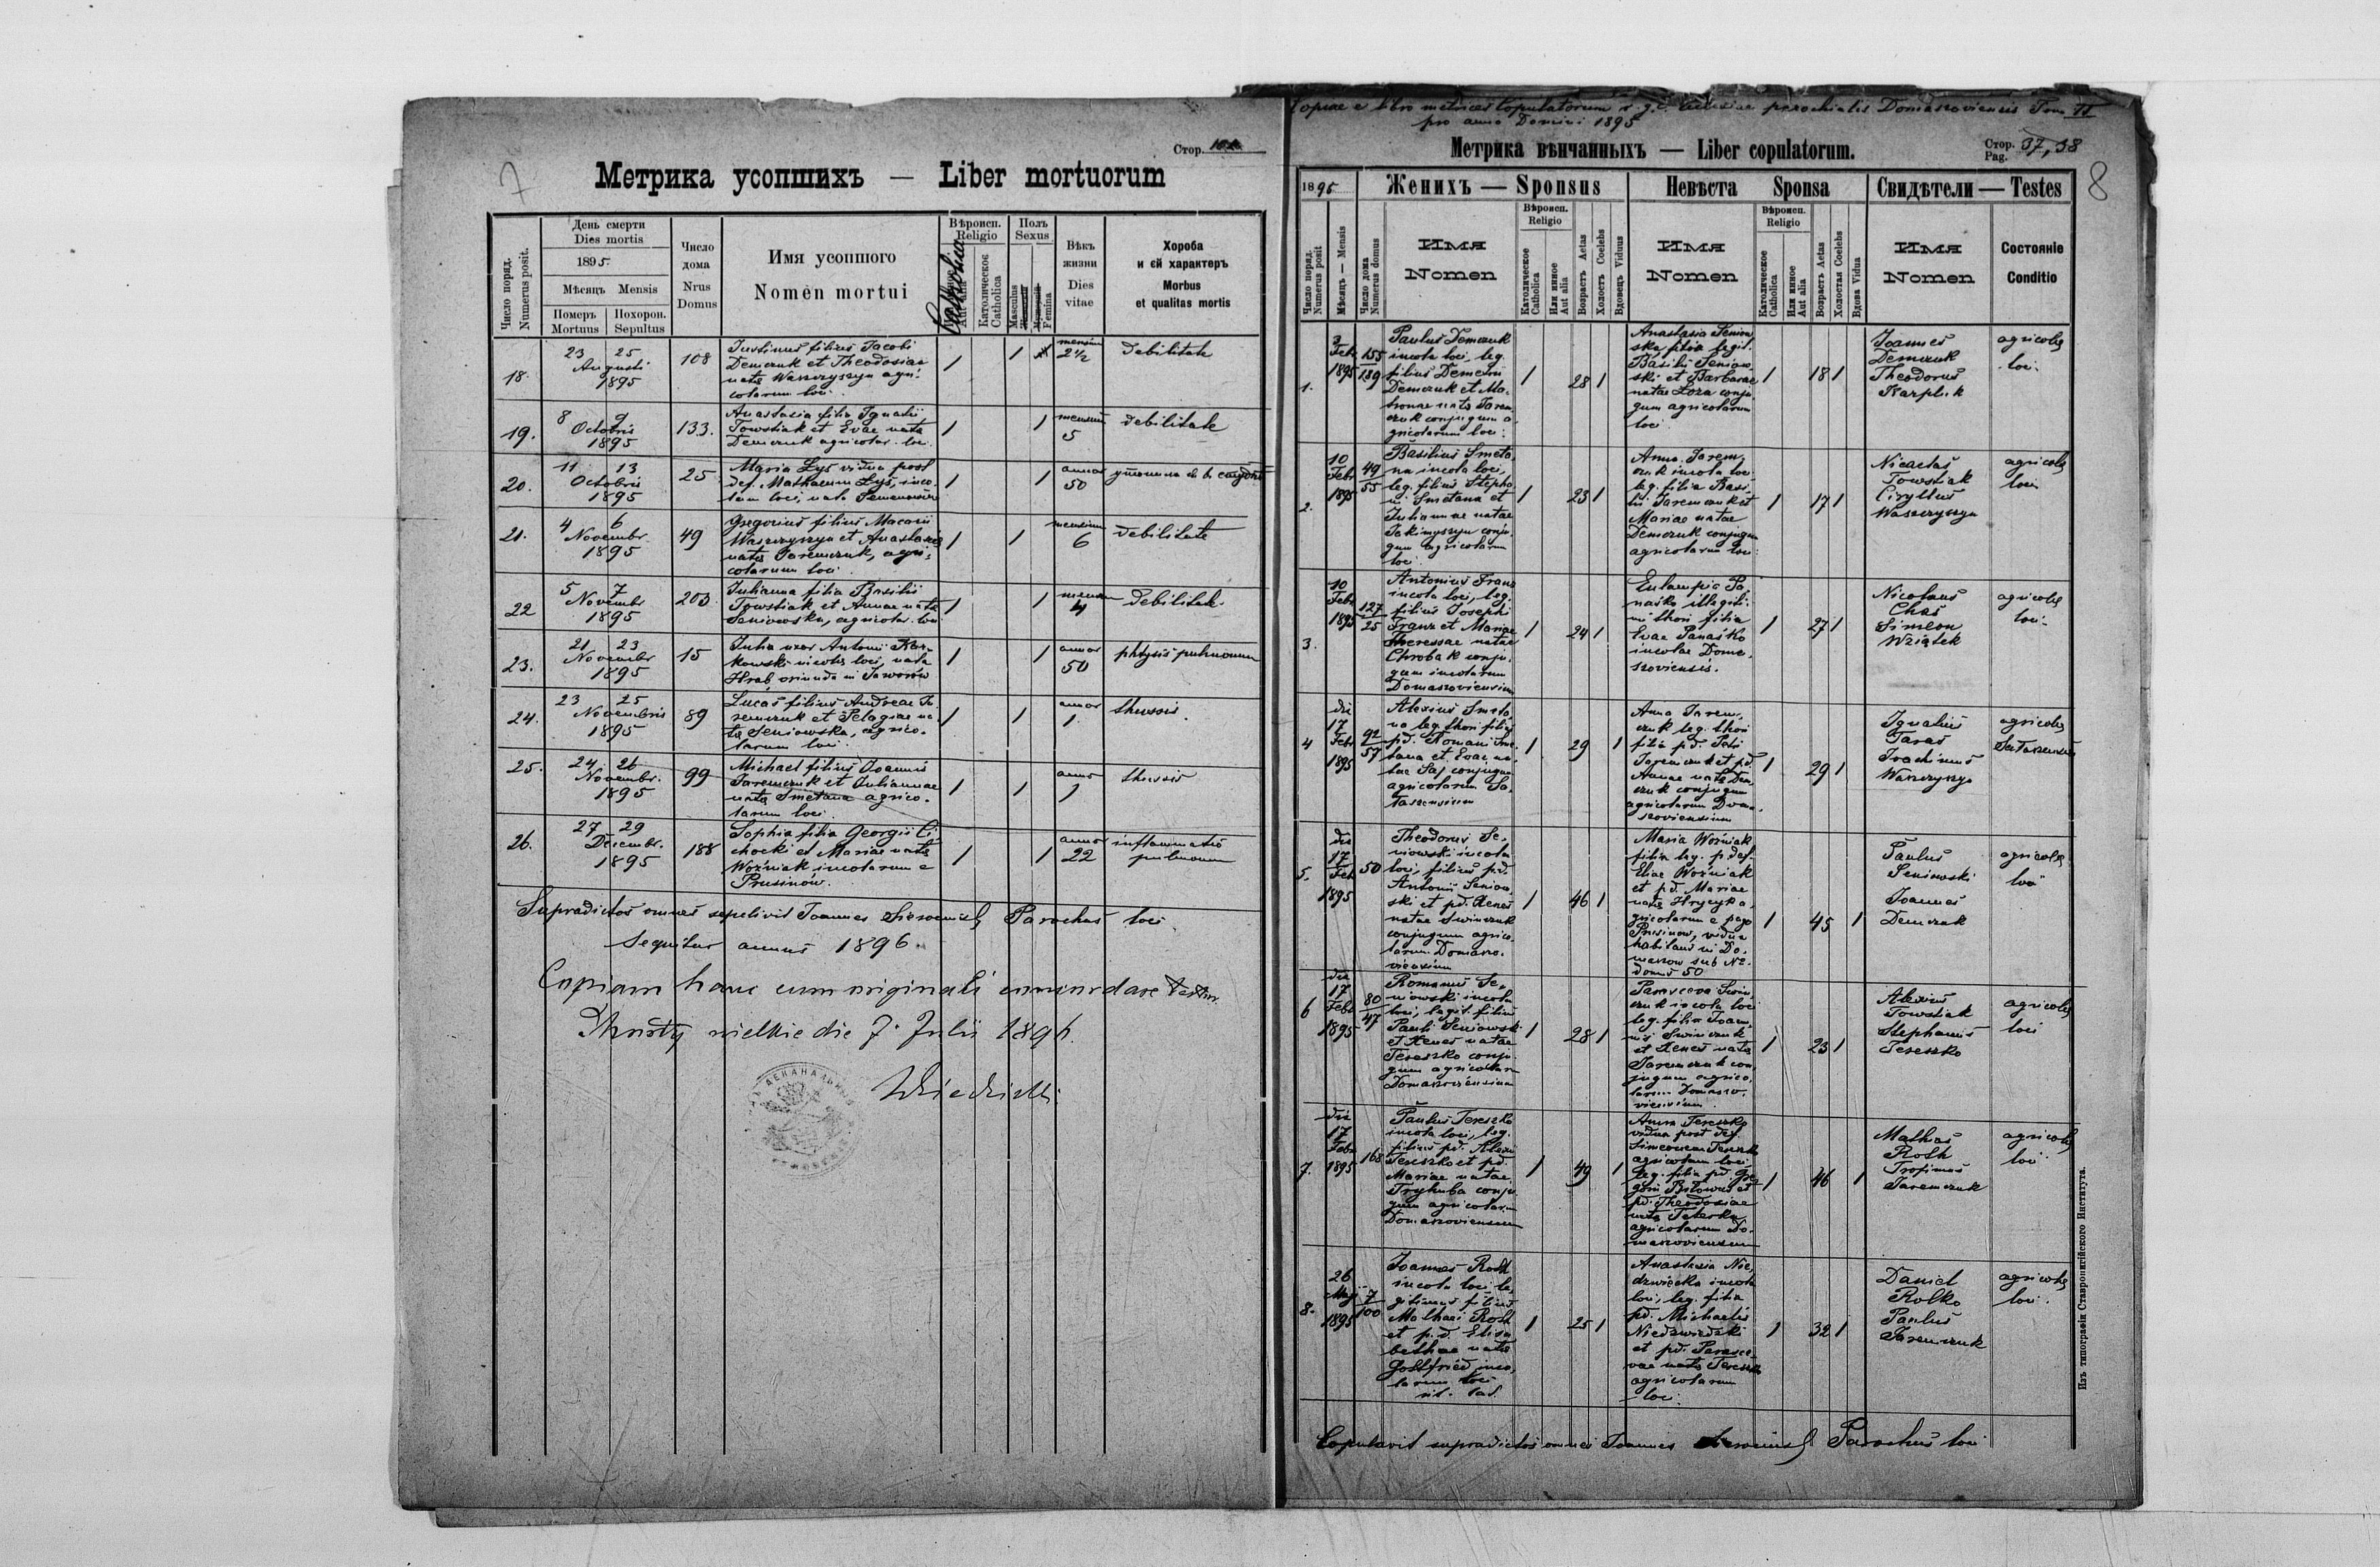 7
Стор. 101
Метрика усопшихъ — Liber mortuorum
Число поряд.
Numerus posit.
День смерти
Dies mortis
1895
Мѣсяцъ Mensis
Померъ
Mortuus
Похорон.
Sepultus
Число
дома
Nrus
Domus
Имя усопшого
Nomen mortui
Вѣроисп.
Religio
Catholica
Aut alia
Католическое
Catholica
Полъ
Sexus
Masculus
Femina
Вѣкъ
жизни
Dies
vitae
Хороба
и єй характеръ
Morbus
et qualitas mortis
18.
23 25
Augusti
1895
108
Justinus filius Jacobi
Demczuk et Theodosiae
natae Waszczyszyn agri-
colarum loci
1 1
mensium
2 1/2
Debilitate
19.
8 9
Octobris
1895
133.
Anastasia filia Ignatii
Towstiak et Evae nata
Demczuk agricolar. loci
1 1
mensium
5
debilitate
20.
11 13
Octobris
1895
25
Maria Lys vidua post
def. Mathaeum Lys, inco-
lam loci, nata
1 1
annor
50
21.
4 6
Novembr.
1895
49
Gregorius filius Macarii
Waszczyszyn et Anastasiae
natae Jaremczuk, agri-
colarum loci
1 1
mensium
6
debilitate
22
5 7
Novembr
1895
203
Julianna filia Basilii
Towstiak et Annae nata
Seniowska, agricolar. loci
1 1
mensium
4
debilitate
23.
21 23
Novembr
1895
15
Julia uxor Antonii Kar-
kowski incolae loci, nata
Hrab, oriunda in Jaworów
1 1
annor
50
phtysis pulmonum
24.
23 25
Novembris
1895
89
Lucas filius Andreae Ja-
remczuk et Pelagiae na-
tae Seniowska, agrico-
larum loci
1 1
annor
1
thussis
25.
24 26
Novembr.
1895
99
Michael filius Joannis
Jaremczuk et Juliannae
natae Smetana agrico-
larum loci
1 1
annor
1
thussis
26.
27 29
Decembr.
1895
188
Sophia filia Georgii Ci-
chocki et Mariae natae
Woźniak incolarum e
Prusinów.
1 1
annor
22
inflammatio
pulmonum
Supradictos omnes sepelivit Joannes Parochus loci
Sequitur annus 1896.
Copiam hanc cum originali concordare testor.
Mosty wielkie die 7. Julii 1896.
Copiae e libro metrices Copulatorum r. g. c. Ecclesiae parochialis Domaszoviensis Tom II
pro anno Domini 1895
Метрика вѣнчанныхъ — Liber copulatorum.
Стор.
Pag. 37, 38
8
1895
Женихъ — Sponsus
Невѣста Sponsa
Свидѣтели — Testes
Число поряд.
Numerus posit
Мѣсяцъ — Mensis
Число дома
Numerus domus
Имя
Nomen
Вѣроисп.
Religio
Католическое
Catholica
Или инное
Aut alia
Возрастъ Aetas
Холостъ Coelebs
Вдовецъ Viduus
Имя
Nomen
Вѣроисп.
Religio
Католическое
Catholica
Или инное
Aut alia
Возрастъ Aetas
Холостая Coelebs
Вдова Vidua
Имя
Nomen
Состояніе
Conditio
1.
2
Febr
1895
155
189
Paulus Demczuk
incola loci, leg.
filius Demetrii
Demczuk et Ma-
tronae natae Jarem-
czuk conjugum a-
gricolarum loci.
1 28 1
Anastasia Seniow-
ska filia legit.
Basilii Seniow-
ski et Barbarae
natae Loza conju-
gum agricolarum
loci
1 18 1
Joannes
Demczuk
Theodorus
Karpluk
agricolae
loci.
2.
10
Febr
1895
49
55
Basilius Smeta-
na incola loci,
leg. filius Stepha-
ni Smetana et
Juliannae natae
Jakimyszyn conju-
gum agricolarum
loci
1 23 1
Anna Jarem-
czuk incola loci
leg. filia Basi-
lii Jaremczuk et
Mariae natae
Demczuk conjugum
agricolarum loci
1 17 1
Nicaetas
Towstiak
Ciryllus
Waszczyszyn
agricolae
loci
3.
10
Febr
1895
127
25
Antonius Franz
incola loci, leg.
filius Josephi
Franz et Mariae
Theressae natae
Chrobak conju-
gum incolarum
Domaszoviensium
1 24 1
Eulampia Pa-
naśko illegiti-
mi thori filia
Evae Panaśko
incolae Doma-
szoviensis.
1 27 1
Nicolaus
Chaś
Simeon
Wziątek
agricolae
loci
4
die
17
Febr
1895
92
57
Alexius Smeta-
na leg. thori filius
pd. Romani Sme-
tana et Evae na-
tae Saj conjugum
agricolarum
1 29 1
Anna Jarem-
czuk leg. thori
filia pd. Petri
Jaremczuk et pd.
Annae natae Dem-
czuk conjugum
agricolarum Doma-
szoviensium
1 29 1
Ignatius
Taras
Joachimus
Waszczyszyn
agricolae
5.
die
17
Febr
1895
50
Theodorus Se-
niowski incola
loci, filius pd.
Antonii Seniow-
ski et pd. Xeniae
natae Swinczuk
conjugum agrico-
larum Domaszo-
viensium
1 46 1
Maria Woźniak
filia leg. p. def.
Eliae Woźniak
et pd. Mariae
natae Hrycyka,
agricolarum e pago
Prusinow, vidua
habitans in Do-
maszow sub No
domus 50
1 45 1
Paulus
Seniowski
Joannes
Demczuk
agricolae
loci
6
die
17
Febr
1895
80
47
Romanus Se-
niowski incola
loci, legit. filius
Pauli Seniowski
et Xeniae natae
Tereszko conju-
gum agricolarum
Domaszoviensium
1 28 1
Parasceva Swin-
czuk incola loci
leg. filia Joan-
nis Swinczuk
et Xeniae natae
Jaremczuk con-
jugum agrico-
larum Domaszo-
viensium
1 23 1
Alexius
Towstiak
Stephanus
Tereszko
agricolae
loci
7.
die
17
Febr
1895
168
Paulus Tereszko
incola loci, leg.
filius pd. Alexii
Tereszko et pd.
Mariae natae
Tryhuba conju-
gum agricolarum
Domaszoviensium
1 49 1
Anna Tereszko
vidua post def.
Simeonem Tereszko
agricolam loci
leg. filia pd. Gre-
gorii Bilowus et
pd. Theodosiae
natae Teterka
agricolarum Do-
maszoviensium
1 46 1
Mathias
Roth
Trofimus
Jaremczuk
agricolae
loci
8.
26
Maji
1895
7
100
Joannes Roth
incola loci le-
gitimus filius
Mathaei Roth
et p. d. Elisa-
bethae natae
Gottfried inco-
larum loci
rit. lat.
1 25 1
Anastasia Nie-
dzwiedzka incola
loci, leg. filia
pd. Michaelis
Niedzwiedzki
et pd. Parasce-
vae natae Tereszko
agricolarum
loci.
1 32 1
Daniel
Rolko
Paulus
Jaremczuk
agricolae
loci.
Copulavit supradictos omnes Joannes Parochus loci
Изъ типографіи Ставропигійского Института.